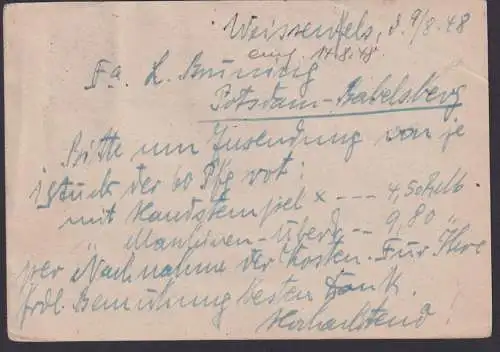 Weissenfels, d. 9/8.48
eing. 14.8.48
Fa. L. Brüning
Potsdam-Babelsberg
Bitte um Zusendung von je
1 Stück der 60 Pfg rot:
mit Handstempel x --- 4,50 RM
" Maschinen-Überdr. -- 9,80 "
per Nachnahme der Kosten. Für Ihre
frdl. Bemühung besten Dank.
Hochachtend!